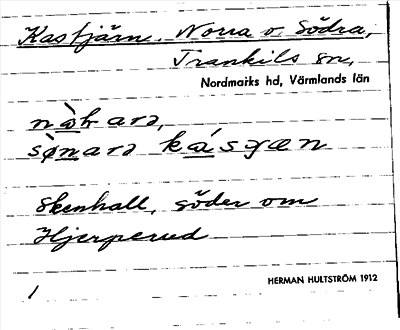 Kastjärn, Norra o. Södra,
Trankils sn,
Nordmarks hd, Värmlands län
kásjæn
Skenhall, söder om
Hjerperud
HERMAN HULTSTRÖM 1912
1